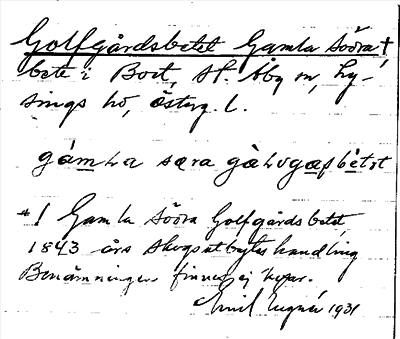 Golfgårdsbetet Gamla Södra †,
bete i Bost, St. Åby sn, Ly-
sings hd, Österg. l.
gámla sœra gàlvgaꞩbètət
*/ Gamla Södra Golfgårdsbetet,
1843 års Skogsutbyteshandling
Benämningen finnes ej kvar.
Emil 1931